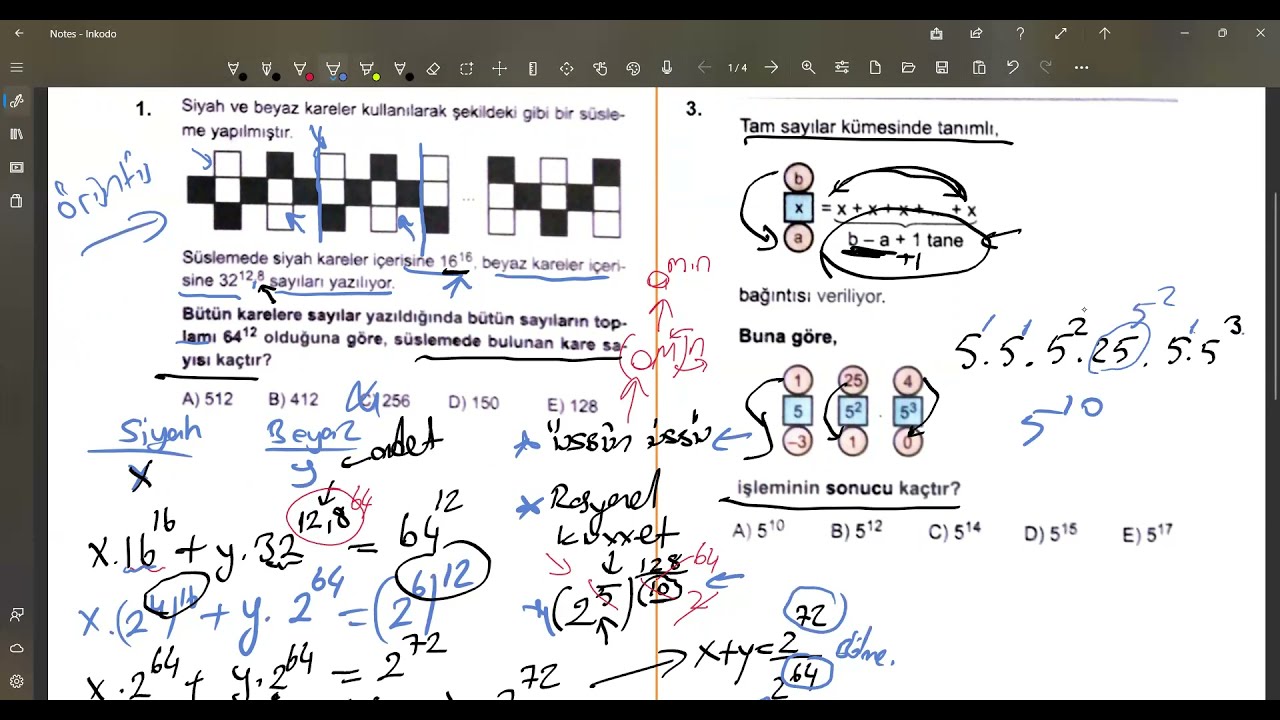 Notes - Inkodo
1/4
1.
Siyah ve beyaz kareler kullanılarak şekildeki gibi bir süsle-
me yapılmıştır.
Örüntü
...
Süslemede siyah kareler içerisine 16^16, beyaz kareler içeri-
sine 32^12,8 sayıları yazılıyor.
Bütün karelere sayılar yazıldığında bütün sayıların top-
lamı 64^12 olduğuna göre, süslemede bulunan kare sa-
yısı kaçtır?
A) 512 B) 412 C) 256 D) 150 E) 128
Siyah Beyaz
x y
adet
x.16^16 + y.32^12,8 = 64^12
64
x.(2^4)^16 + y.2^64 = (2^6)^12
x.2^64 + y.2^64 = 2^72
2^72
üssün üssü
Rasyonel
kuvvet
(2^5)^128/10
64
2
x+y=2^72/2^64
bölme.
3.
Tam sayılar kümesinde tanımlı,
b
x = x + x + x + ... + x
a
b – a + 1 tane
+1
bağıntısı veriliyor.
Buna göre,
1 25 4
5 5^2 . 5^3
–3 1 0
işleminin sonucu kaçtır?
A) 5^10 B) 5^12 C) 5^14 D) 5^15 E) 5^17
5^2
5^1.5^1.5^2.25.5^1.5^3
5^10